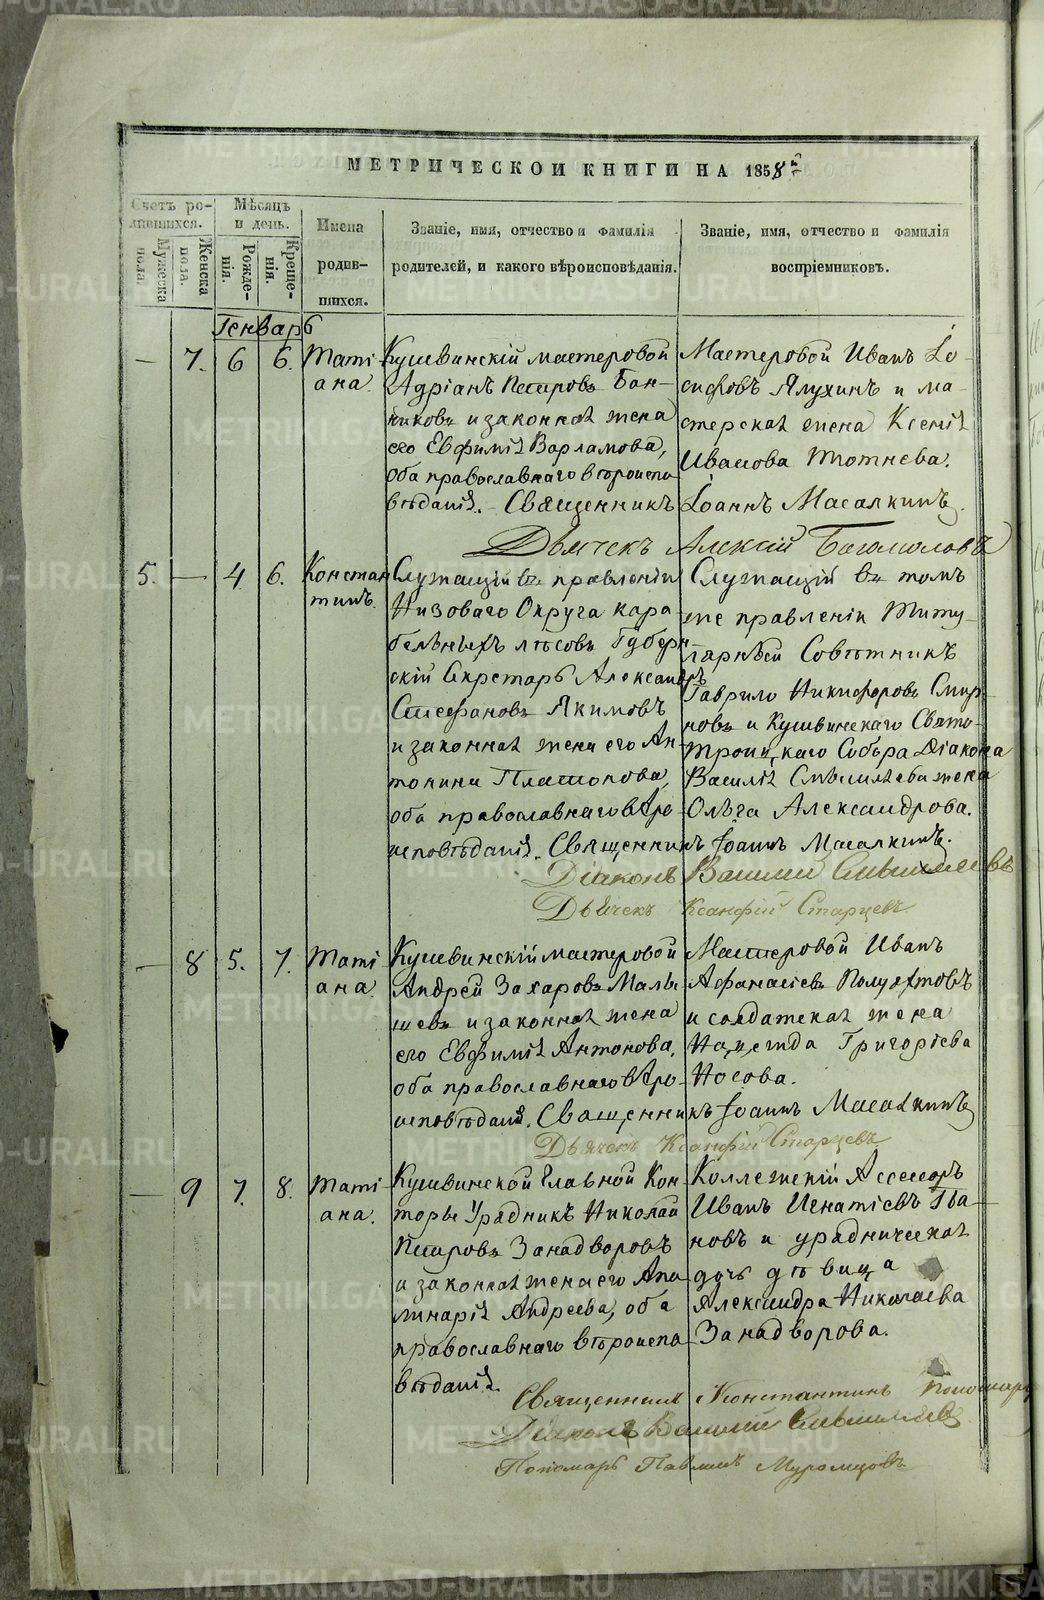 МЕТРИЧЕСКОЙ КНИГИ НА 1858й
Счетъ ро-
дившихся.
Мѣсяцъ
и день.
Имена
родив-
шихся.
Званіе, имя, отчество и фамилія
родителей, и какого вѣроисповѣданія.
Званіе, имя, отчество и фамилія
воспріемниковъ.
Мужеска
пола.
Женска
пола.
Рожде-
нія.
Креще-
нія.
Генварь
— 7. 6 6. Тати-
ана.
Кушвинскій мастеровой
Адріанъ Петровъ Бан-
никовъ и законная жена
его Евфимія Варламова,
оба православнаго вѣроиспо-
вѣданія.
Мастеровой Иванъ Іо-
сифовъ Ялухинъ и ма-
стерская жена Ксенія
Иванова Тотнева.
Священникъ Іоаннъ Масалкинъ.
Дьячекъ Алексій Богомоловъ
5. — 4 6. Констан-
тинъ.
Служащій въ правленіи
Низоваго Округа кора-
бельныхъ лѣсовъ Губерн-
скій Секретарь Александръ
Стефановъ Якимовъ
и законная жена его Ан-
тонина Платонова,
оба православнаго вѣро-
исповѣданія.
Служащій въ томъ
же правленіи Титу-
лярный Совѣтникъ
Гаврило Никифоровъ Смир-
новъ и Кушвинскаго Свято-
троицкаго Собора Діакона
Василія Смышляева жена
Ольга Александрова.
Священникъ Іоаннъ Масалкинъ.
Діаконъ Василій Смышляевъ
Дьячекъ Ксанфій Старцевъ
— 8 5. 7. Тати-
ана.
Кушвинскій мастеровой
Андрей Захаровъ Малы-
шевъ и законная жена
его Евфимія Антонова,
оба православнаго вѣро-
исповѣданія.
Мастеровой Иванъ
Афанасіевъ Полуяхтовъ
и солдатская жена
Надежда Григоріева
Носова.
Священникъ Іоаннъ Масалкинъ
Дьячекъ Ксанфій Старцевъ
— 9 7. 8. Тати-
ана.
Кушвинской Главной Кон-
торы Урядникъ Николай
Петровъ Занадворовъ
и законная жена его Апо-
линарія Андреева, оба
православнаго вѣроиспо-
вѣданія.
Коллежскій Ассесоръ
Иванъ Игнатіевъ Ива-
новъ и урядническая
дочь дѣвица
Александра Николаева
Занадворова.
Священникъ Константинъ Пономаревъ
Діаконъ Василій Смышляевъ
Пономарь Павлинъ Муромцовъ
METRIKI.GASO-URAL.RU